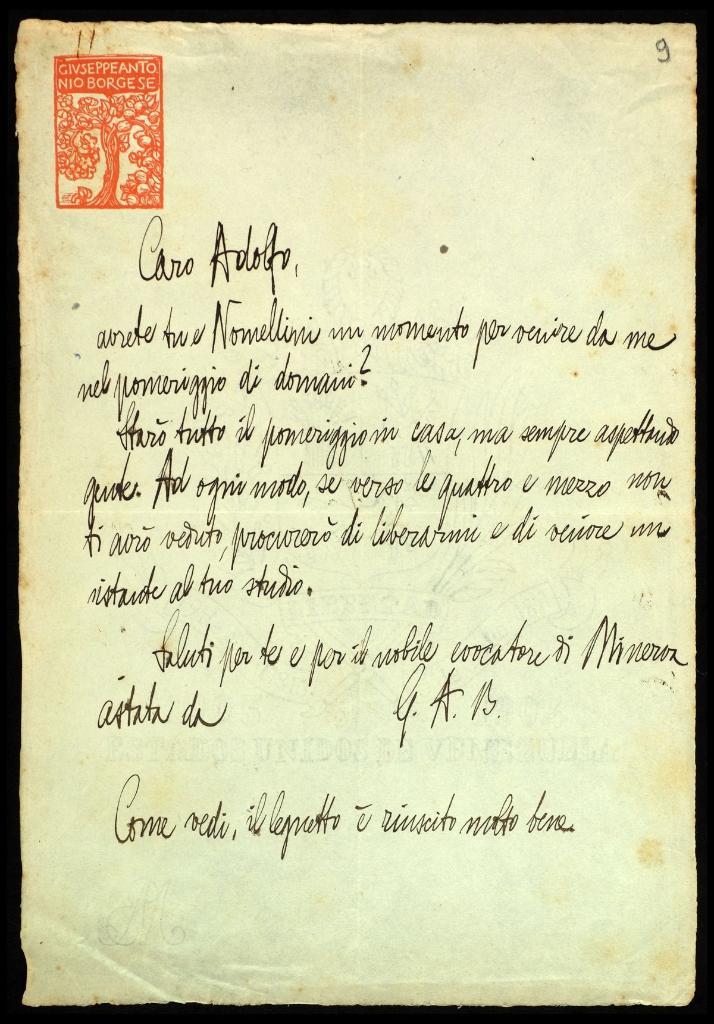 9
GIVSEPPEANTO
NIO BORGESE
Caro Adolfo,
avrete tu e Nomellini un momento per venire da me
nel pomeriggio di domani?
Starò tutto il pomeriggio in casa, ma sempre aspettando
gente. Ad ogni modo, se verso le quattro e mezzo non
ti avrò veduto, procurerò di liberarmi e di venire un
istante al tuo studio.
Saluti per te e per il nobile evocatore di Minerva
astata da G. A. B.
Come vedi, il legnetto è riuscito molto bene.